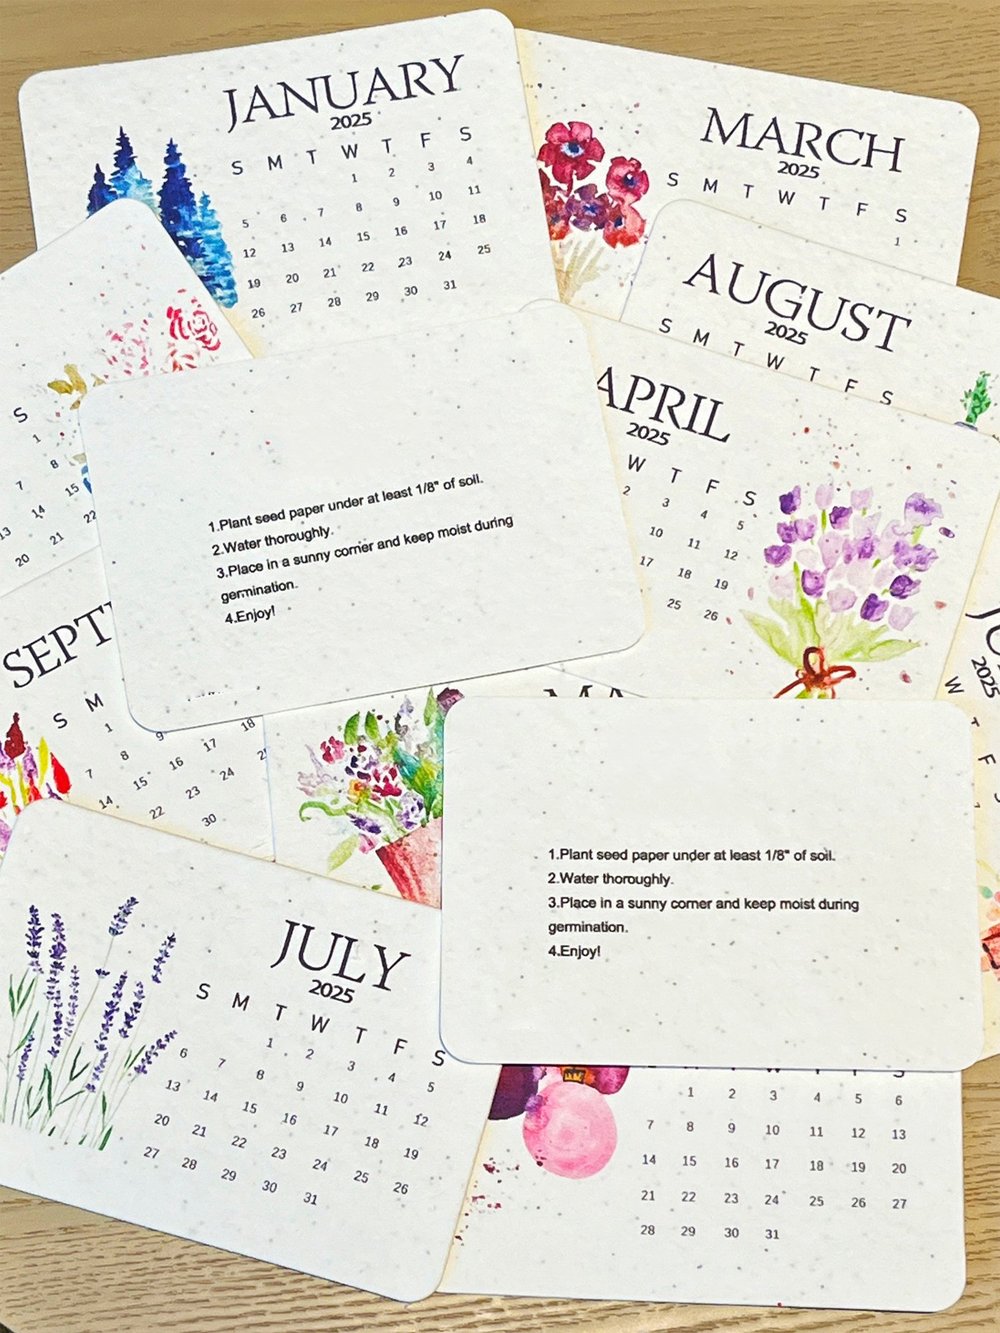 JANUARY
2025
S M T W T F S
1 2 3 4
5 6 7 8 9 10 11
12 13 14 15 16 17 18
19 20 21 22 23 24 25
26 27 28 29 30 31
MARCH
2025
S M T W T F S
1
AUGUST
2025
S M T W T F S
S
1
7 8
13 14 15
20 21 22
APRIL
2025
W T F S
2 3 4 5
10 11 12
17 18 19
25 26
1.Plant seed paper under at least 1/8" of soil.
2.Water thoroughly.
3.Place in a sunny corner and keep moist during
germination.
4.Enjoy!
SEPT
S M
1
7 8 9
14 15 16 17 18
22 23 24
30
MA
2025
W T F
1.Plant seed paper under at least 1/8" of soil.
2.Water thoroughly.
3.Place in a sunny corner and keep moist during
germination.
4.Enjoy!
JULY
2025
S M T W T F S
1 2 3 4 5
6 7 8 9 10 11 12
13 14 15 16 17 18 19
20 21 22 23 24 25 26
27 28 29 30 31
1 2 3 4 5 6
7 8 9 10 11 12 13
14 15 16 17 18 19 20
21 22 23 24 25 26 27
28 29 30 31